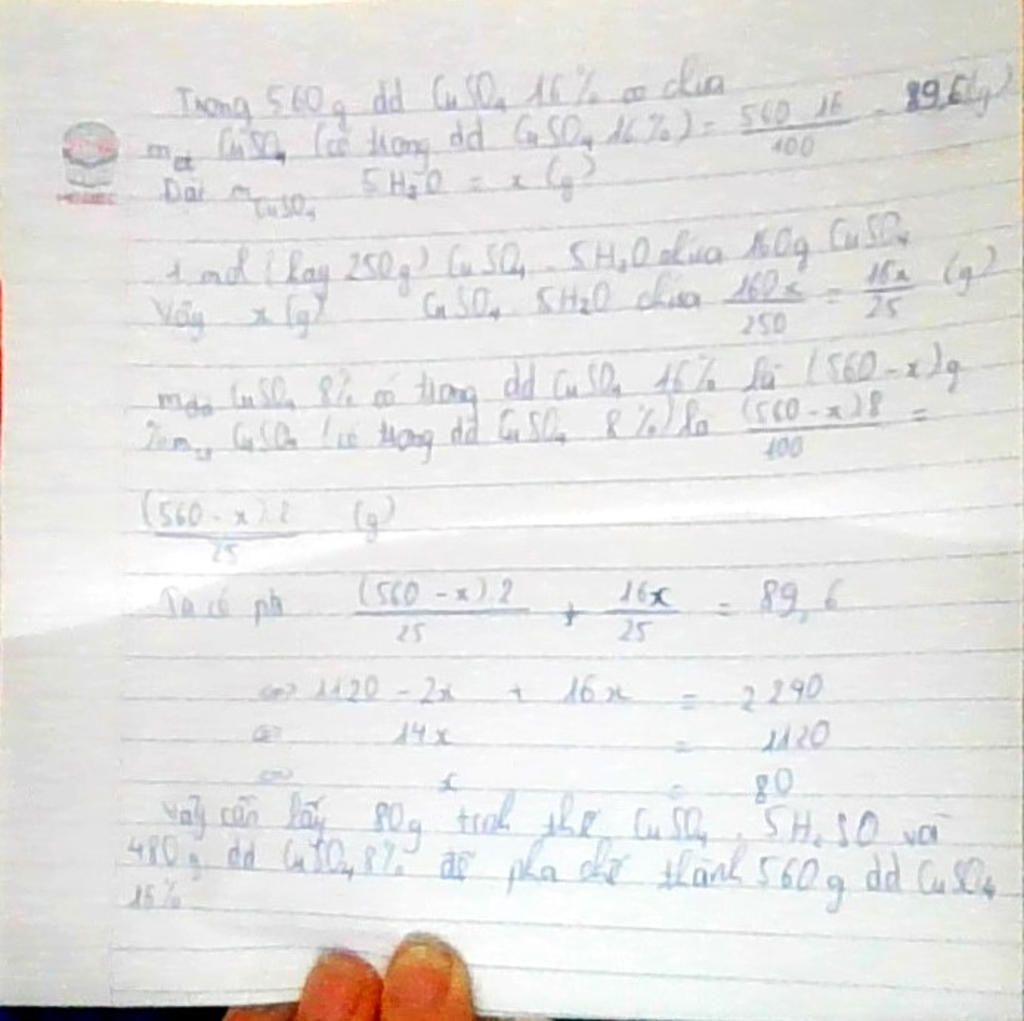 Trong 560g dd CuSO4 16% có chứa
mct CuSO4 (có trong dd CuSO4 16%) = 560.16/100 = 89,6(g)
Đặt mCuSO4 5H2O = x (g)
1 mol (hay 250g) CuSO4 . 5H2O chứa 160g CuSO4
Vậy x (g) CuSO4 5H2O chứa 160x/250 = 16x/25 (g)
mdd CuSO4 8% có trong dd CuSO4 16% là (560-x)g
CuSO4 (có trong dd CuSO4 8%) là (560-x)8/100 =
(560-x).2/25 (g)
Ta có pt (560-x).2/25 + 16x/25 = 89,6
<=> 1120 - 2x + 16x = 2240
<=> 14x = 1120
<=> x = 80
Vậy cần lấy 80g tinh thể CuSO4 . 5H2SO và
480g dd CuSO4 8% để pha chế thành 560g dd CuSO4
16%